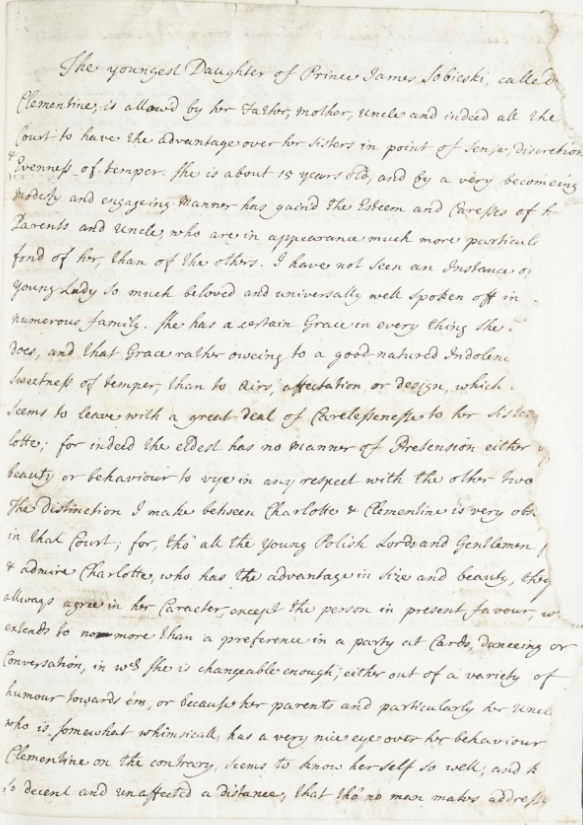 The youngest Daughter of Prince James Sobieski, called
Clementine, is allowed by her Father, mother, Uncle and indeed all the
Court to have the advantage over her Sisters in point of Sense, discretion
& Evenness of temper. She is about 15 years old, and by a very becomeing
modesty and engageing Manner has gaind the Esteem and Caresses of h
Parents and Uncle, who are in appearance much more particul
fond of her, than of the others. I have not seen an Instance o
young Lady so much beloved and universally well spoken off in
numerous family. She has a certain Grace in every thing She
does, and that Grace rather oweing to a good natured Indolen
Sweetness of temper, than to airs, affectation or design, which
Seems to leave with a great deal of Carelessenesse to her Sister
lotte; for indeed the eldest has no manner of Pretension either
beauty or behaviour to vye in any respect with the other two
The distinction I make between Charlotte & Clementine is very obs
in that Court; for, tho' all the young Polish Lords and Gentlemen
& admire Charlotte, who has the advantage in Size and beauty, they
allways agree in her Caracter, except the person in present favour, w
extends to no more than a preference in a party at Cards, danceing or
Conversation, in wch She is changeable enough; either out of a variety of
humour towards em, or because her parents and particularly her Uncle
who is somewhat whimsicall, has a very nice eye over her behaviour
Clementine on the contrary, seems to know herself so well, and k
so decent and unaffected a distance, that tho' no man makes addresse